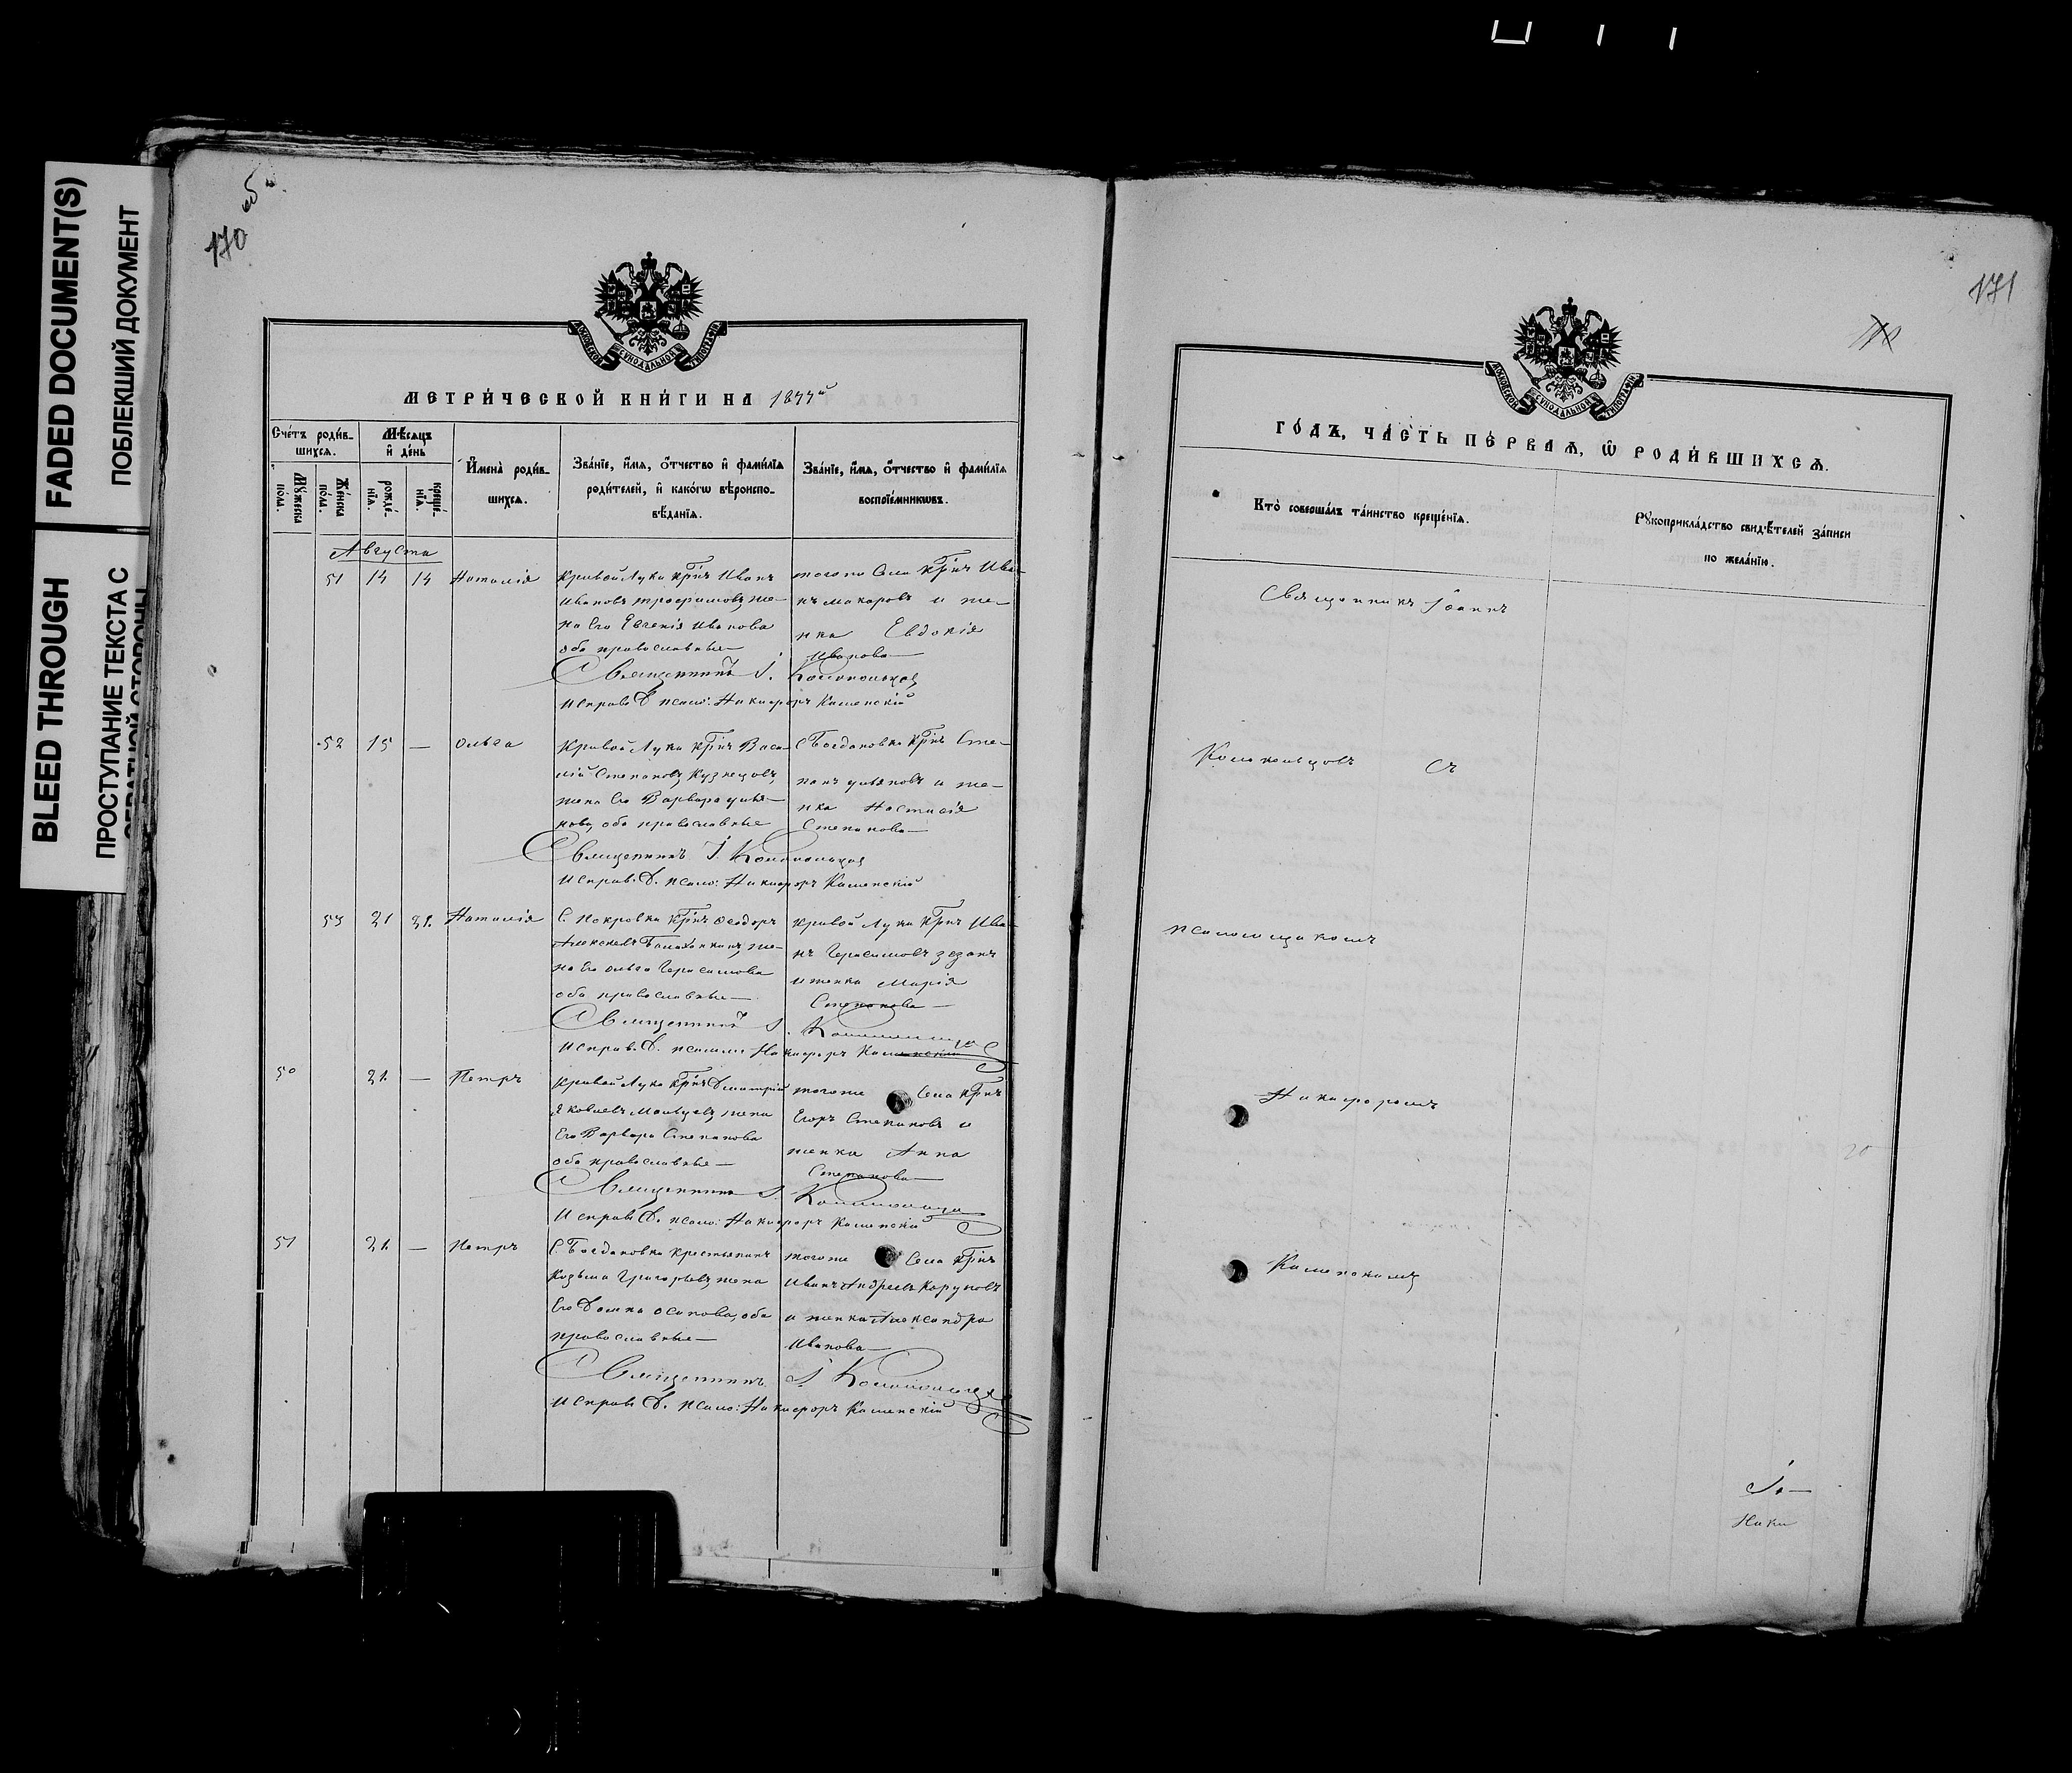 FADED DOCUMENT(S)
ПОБЛЕКШИЙ ДОКУМЕНТ
BLEED THROUGH
ПРОСТУПАНИЕ ТЕКСТА С
ОБРАТНОЙ СТОРОНЫ
170 об.
МЕТРИ́ЧЕСКОЙ КНИ́ГИ НА 1877й
Сче́тъ роди́в-
шихсѧ.
Мѣ́сѧцъ
и҆ де́нь
Мꙋ́жеска
по́ла.
Же́нска
по́ла.
рожде́-
нїѧ.
креще́-
нїѧ.
И҆мена̀ роди́в-
шихсѧ.
Зва́нїе, и҆́мѧ, ѻ҆́тчество и҆ фами́лїѧ
роди́телей, и҆ како́гѡ вѣроиспо-
вѣ́данїѧ.
Зва́нїе, и҆́мѧ, ѻ҆́тчество и҆ фами́лїѧ
воспрїе́мникѡвъ.
Августа
51 14 14 Наталія
Кривой Луки крнъ Иванъ
Ивановъ Трофимовъ, же-
на Его Евгенія Иванова
оба православные
тогоже Села крнъ Ива-
нъ Макаровъ и же-
нка Евдокія
Иванова
Священникъ І. Коломольцов
Исправ. Д. псало: Никифоръ Каменскій
52 15 — Ольга
Кривой Луки крнъ Васи-
лій Степановъ Кузнецовъ,
жена Его Варвара Улья-
нова, оба православные
С. Богдановки крнъ Сте-
панъ Ульяновъ и же-
нка Настасія
Степанова
Священникъ І.
Исправ. Д. псало: Никифоръ Каменскій
53 21 21 Наталія
С. Покровки крнъ Ѳеодоръ
на Его Ольга Герасимова
оба православные
Кривой Луки крнъ Ива-
нъ Герасимовъ
и женка Марія
Степанова
Священникъ І.
Исправ. Д. псалом: Никифоръ Каменскій
50 21 — Петръ
Кривой Луки крнъ Дмитрій
Яковлевъ Мальцевъ, жена
Его Варвара Степанова
оба православные
тогоже Села крнъ
Егоръ Степановъ и
женка Анна
Степанова
Священникъ І.
Исправ. Д. псало: Никифоръ Каменскій
51 21 — Петръ
С. Богдановки крестьянинъ
Козьма Григорьевъ, жена
Его Домна Осипова, оба
православные
тогоже Села крнъ
Иванъ Андреевъ Каруновъ
и женка Александра
Иванова
Священникъ І.
Исправ. Д. псало: Никифоръ Каменскій
171
ГО́ДЪ, ЧА́СТЬ ПЕ́РВАѦ, Ѡ҆ РОДИ́ВШИХСѦ.
Кто̀ соверша́лъ та́инство креще́нїѧ.
Рꙋкоприкла́дство свидѣ́телей за́писи
по жела́нїю.
Священникъ Іоаннъ
съ
псаломщикомъ
Никифоромъ
Каменскимъ
Іо-
Ники